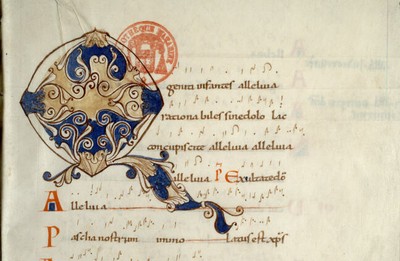 Q
geniti infantes alleluia
rationabiles sinedolo lac
concupiscite alleluia alleluia
alleluia P Exultatedo
Alleluia
Paschanostrum immo latus est xps